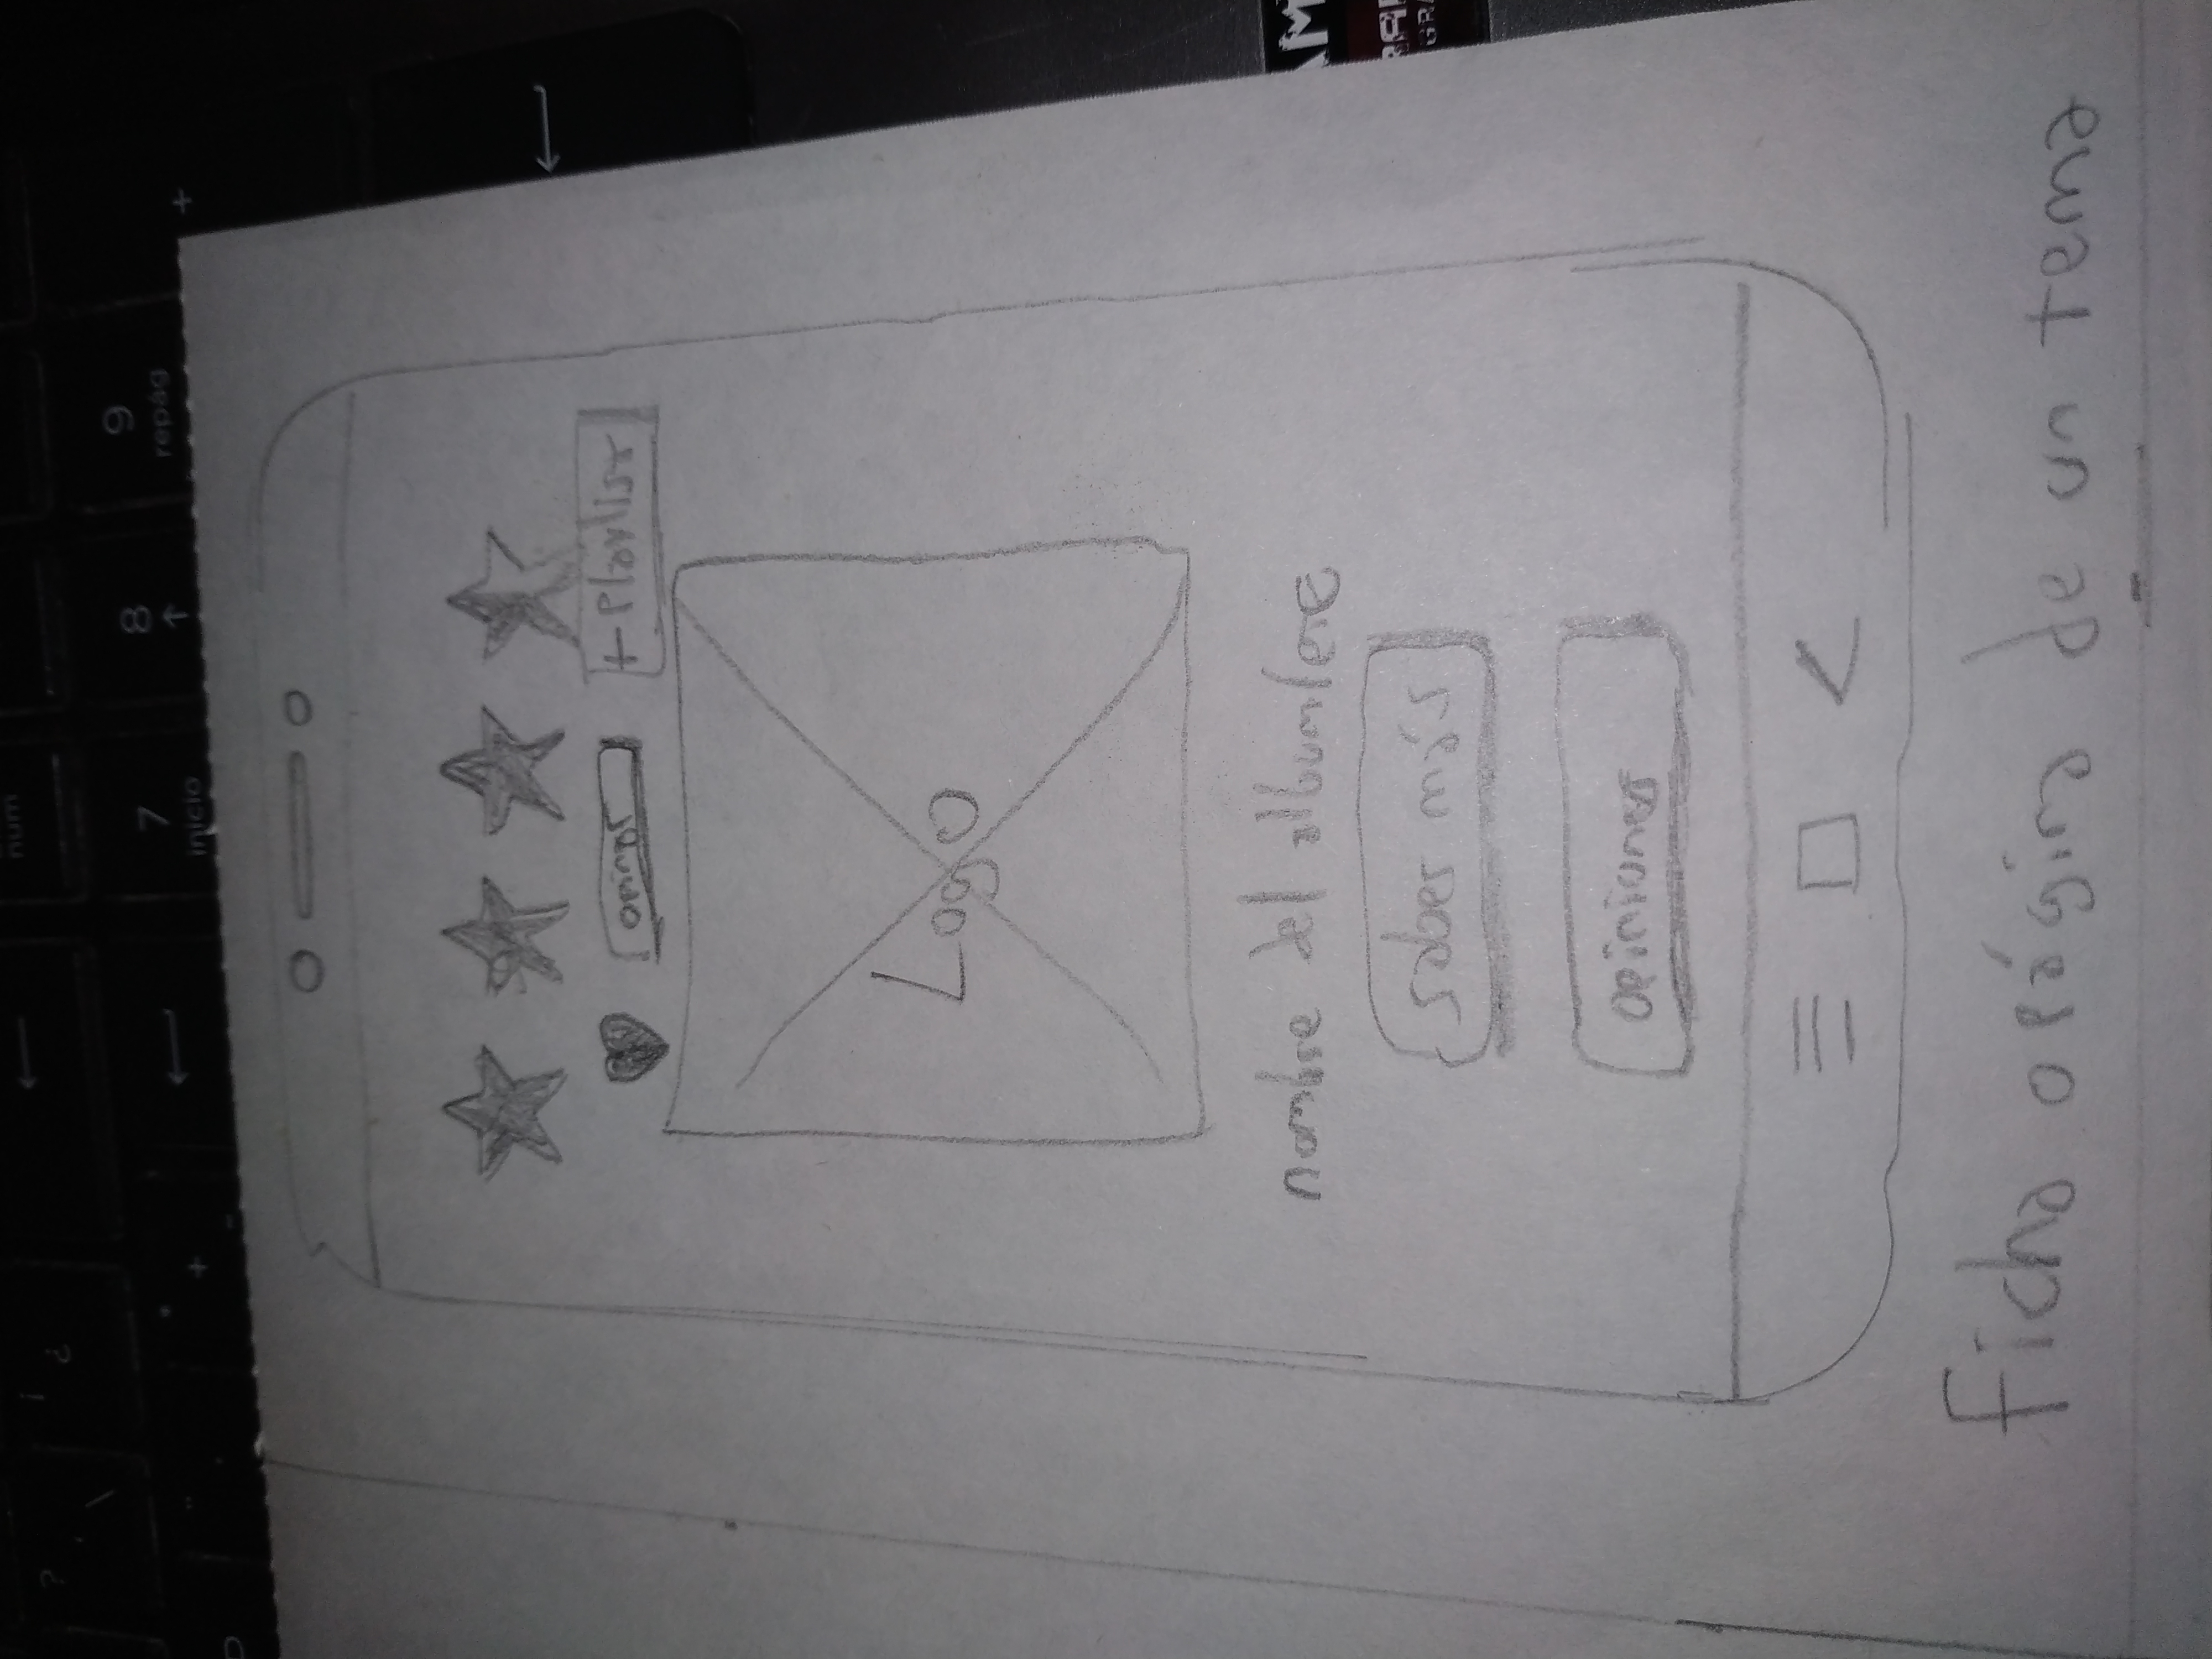 ?
¡
¿
num
*
+
7
inicio
8
9
repág
+
opinar
+ Playlist
Logo
nombre del album/ere
saber más
opiniones
AM
GRA
Ficha o página de un tema